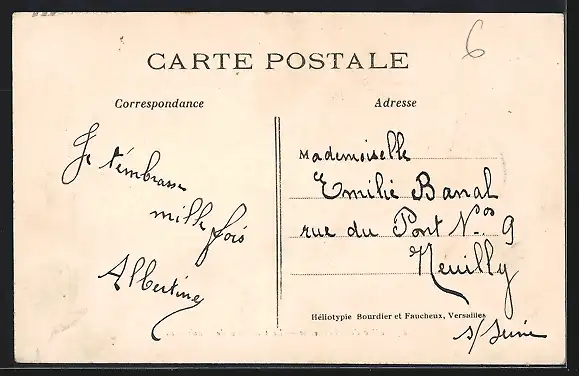 6
CARTE POSTALE
Correspondance
Adresse
Je t'embrasse
mille fois
Albertine
Mademoiselle
Emilie Banal
rue du Pont Nos 9
Neuilly
s/Seine
Héliotypie Bourdier et Faucheux, Versailles